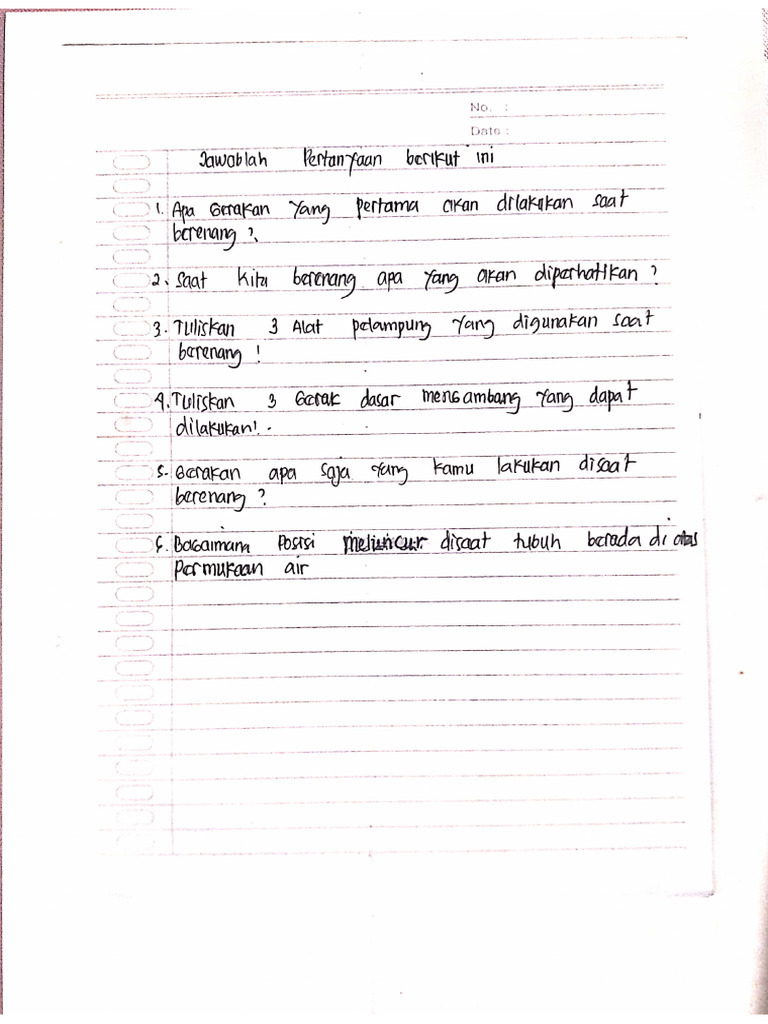 No. :
Date :
Jawablah Pertanyaan berikut ini
1. Apa Gerakan Yang pertama akan dilakukan saat
berenang ?
2. Saat kita berenang apa yang akan diperhatikan ?
3. Tuliskan 3 Alat pelampung yang digunakan saat
berenang !
4. Tuliskan 3 Gerak dasar mengambang yang dapat
dilakukan! .
5. Gerakan apa saja yang kamu lakukan disaat
berenang ?
6. Bagaimana Posisi meluncur disaat tubuh berada di atas
Permukaan air